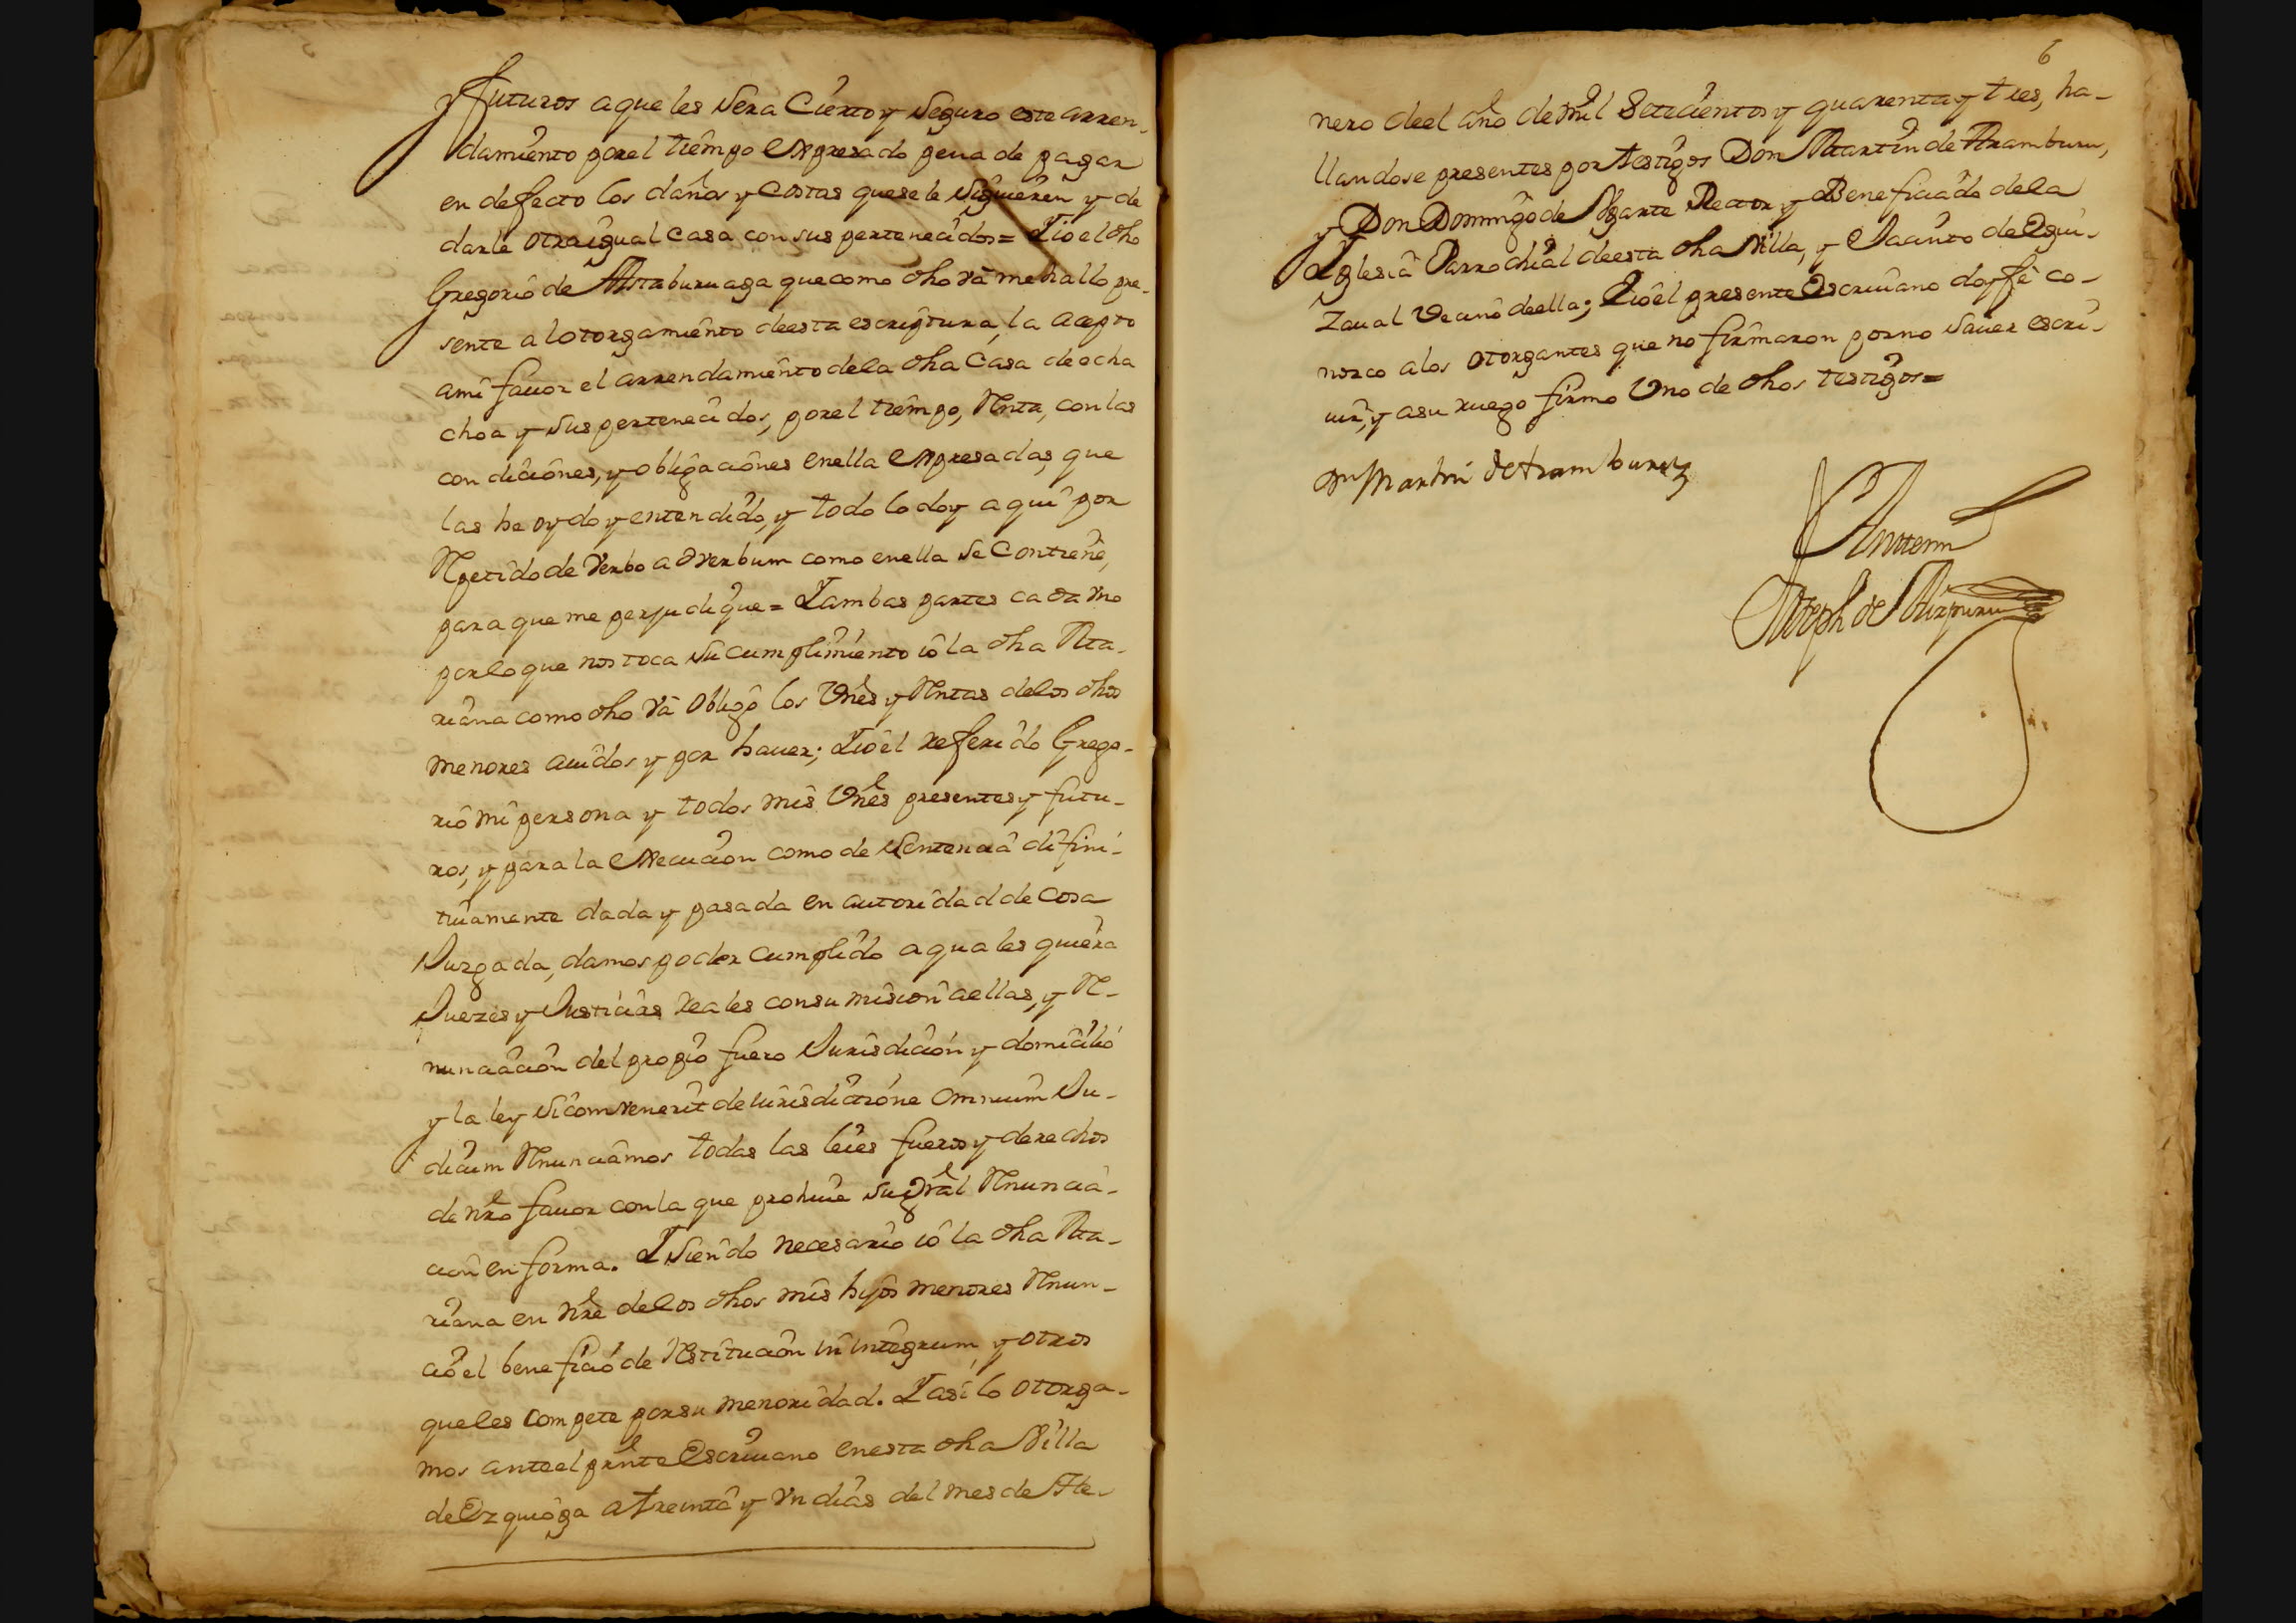 y futuros a que les sera cierto y seguro este arren-
damiento por el tiempo expresado pena de pagar
en defecto los daños y costas que se le siguieren y de
darle otra igual casa con sus pertenecidos = Yio el dho
Gregorio de Astaburuaga que como dho va me hallo pre-
sente a lotorgamiento deesta escriptura, la acepto
ami fauor el arrendamiento dela dha Casa de ocha
choa y sus pertenecidos, por el tiempo, Renta, con las
condiciones, y obligaciones enella expresadas, que
las he oydo y entendido, y todo lo doy aqui por
Repetido de verbo ad verbum como enella se Contiene,
para que me perjudique = Y ambas partes cada vno
por lo que nos toca su cumplimiento io la dha Ma-
riana como dho va obligo los Vnes y Rentas delos dhos
menores auidos y por hauer; Yio el referido Grego-
rio mi persona y todos mis Vnes presentes y futu-
ros, y para la execucion como de sentencia difini-
tiuamente dada y pasada en autoridad de Cosa
Juzgada, damos poder cumplido a quales quiera
Juezes y Justicias reales con su mision aellas, y Re-
nunciacion del propio fuero Jurisdicion y domicilio
y la ley sicomvenerit de iurisdictione omnium Ju-
dicum Renunciamos todas las leies fueros y derechos
de nro fauor con la que prohiue su gral Renuncia-
cion en forma. Y siendo necesario io la dha Ma-
riana en nre delos dhos mis hijos menores Renun-
cio el beneficio de restitucion in integrum, y otros
que les compete por su menoridad. Y asi lo otorga-
mos ante el prnte Escriuano enesta dha Villa
de Ezquioga a treinta y vn dias del mes de He-
6
nero deel año de mil Setecientos y quarenta y tres, ha-
llandose presentes por testigos Don Martin de Aramburu,
y Don Domingo de Vgarte Rector y Beneficiado dela
Yglesia Parrochial deesta dha Villa, y Jacinto de Egui-
zaual Vecino deella; Yio el presente Escriuano doy fe co-
nozco alos otorgantes que no firmaron por no sauer escri-
uir, y asu ruego firmo Vno de dhos testigos =
Dn Martin de Aramburu
Antemi
Joseph de Aizpuru